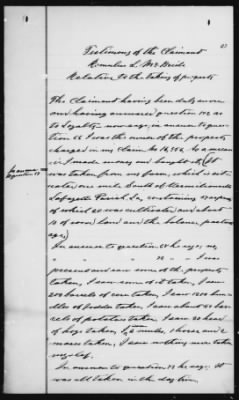 63
Testimony of the Claimant
Romulus L. McBride
Relative to the taking of property
The Claimant having been duly sworn
and having answered question 1st as
to Loyalty now says, in answer to ques-
tion 56 I was the owner of the property
charged in my claim No 16,556 by a mean
in I made money and bought it, (It
In answer
to question 58
was taken from my farm, which is sit-
uated, one mile South of Vermilionville
Lafayette Parish La, containing acres
of which 80 was cultivated and about
18 of wood land and the balance pastur-
age,)
In answer to question 58 he says, no,
" " " " I was
present and saw some of the property
taken, I saw some of it taken, I saw
200 barrels of corn taken, I saw 1200 bun-
dles of fodder taken, I saw about 60 bar-
rels of potatoes taken, I saw 20 head
of hogs taken, 2 mules, 1 horse, and 2
mares taken, I saw nothing more taken
myself.
In answer to question he says: It
was all taken in the day time,